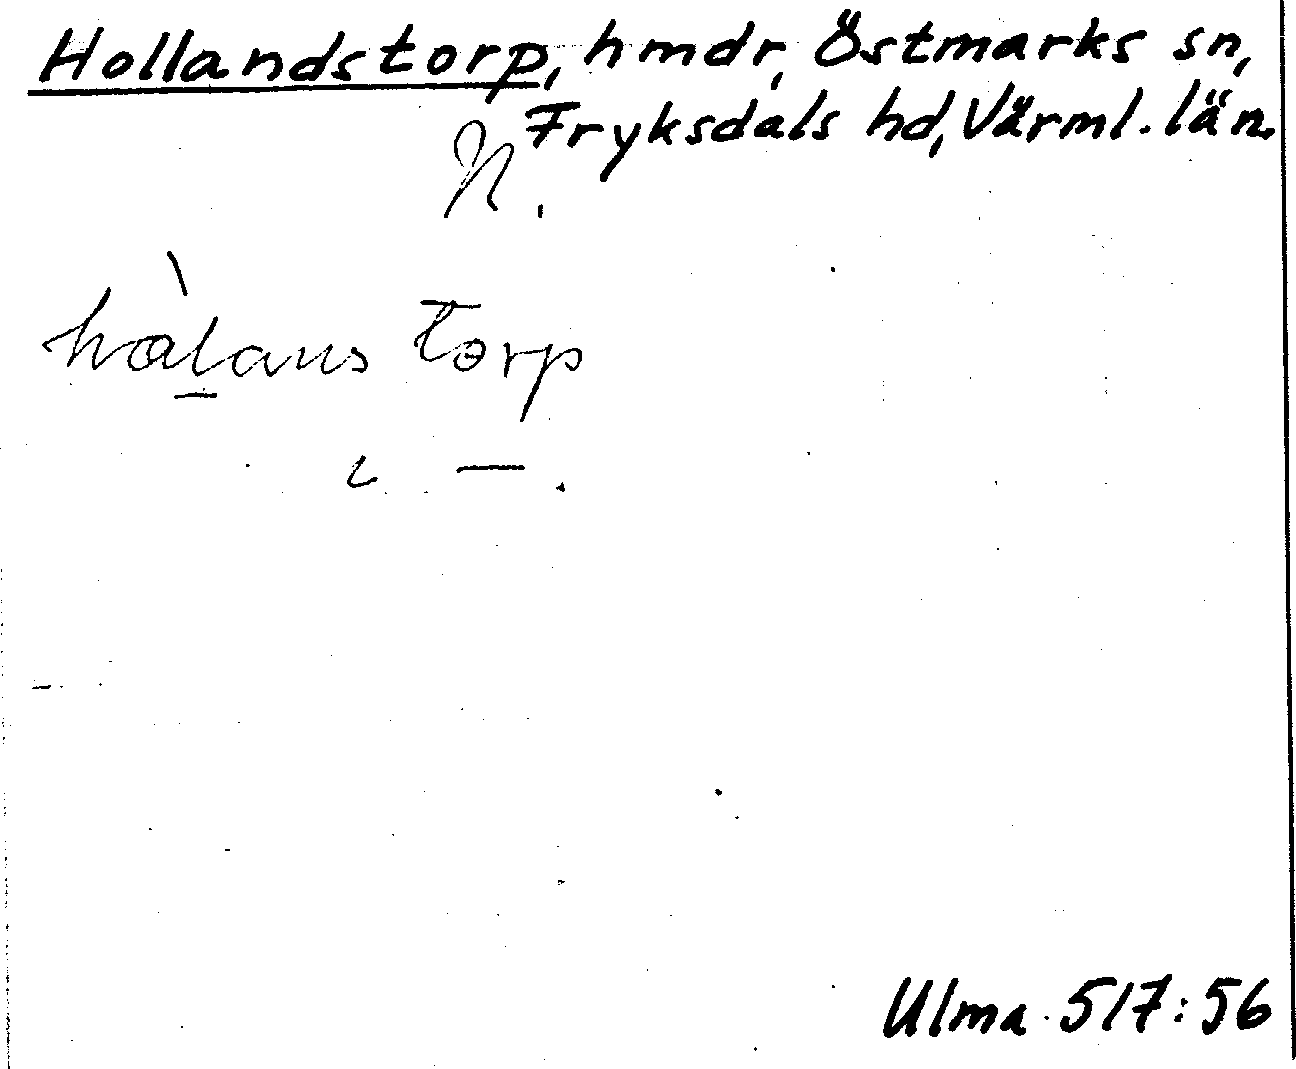 Hollandstorp, hmdr, Östmarks sn,
Fryksdals hd, Värml. län.
N.
hàlans torp
i —.
Ulma 517:56